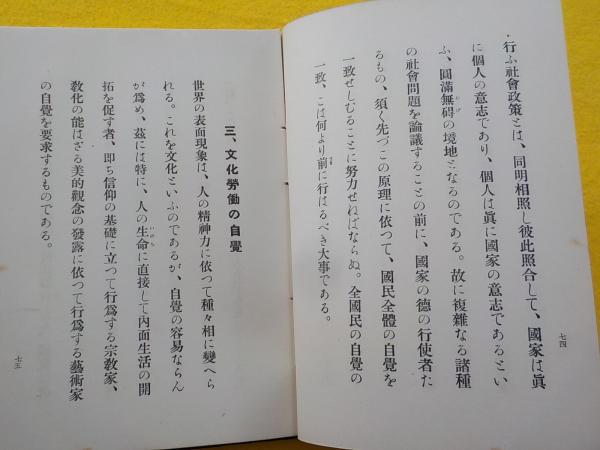 行ふ社會政策とは、同明相照し彼此照合して、國家は眞
に個人の意志であり、個人は眞に國家の意志であるとい
ふ、圓滿無碍の境地となるのである。故に複雜なる諸種
の社會問題を論議することの前に、國家の德の行使者た
るもの、須く先づこの原理に依つて、國民全體の自覺を
一致せしむることに努力せねばならぬ。全國民の自覺の
一致、こは何より前に行はるべき大事である。
七四
三、文化勞働の自覺
世界の表面現象は、人の精神力に依つて種々相に變へら
れる。これを文化といふのであるが、自覺の容易ならん
が爲め、茲には特に、人の生命に直接して内面生活の開
拓を促す者、即ち信仰の基礎に立つて行爲する宗教家、
教化の能はざる美的觀念の發露に依つて行爲する藝術家
の自覺を要求するものである。
七五